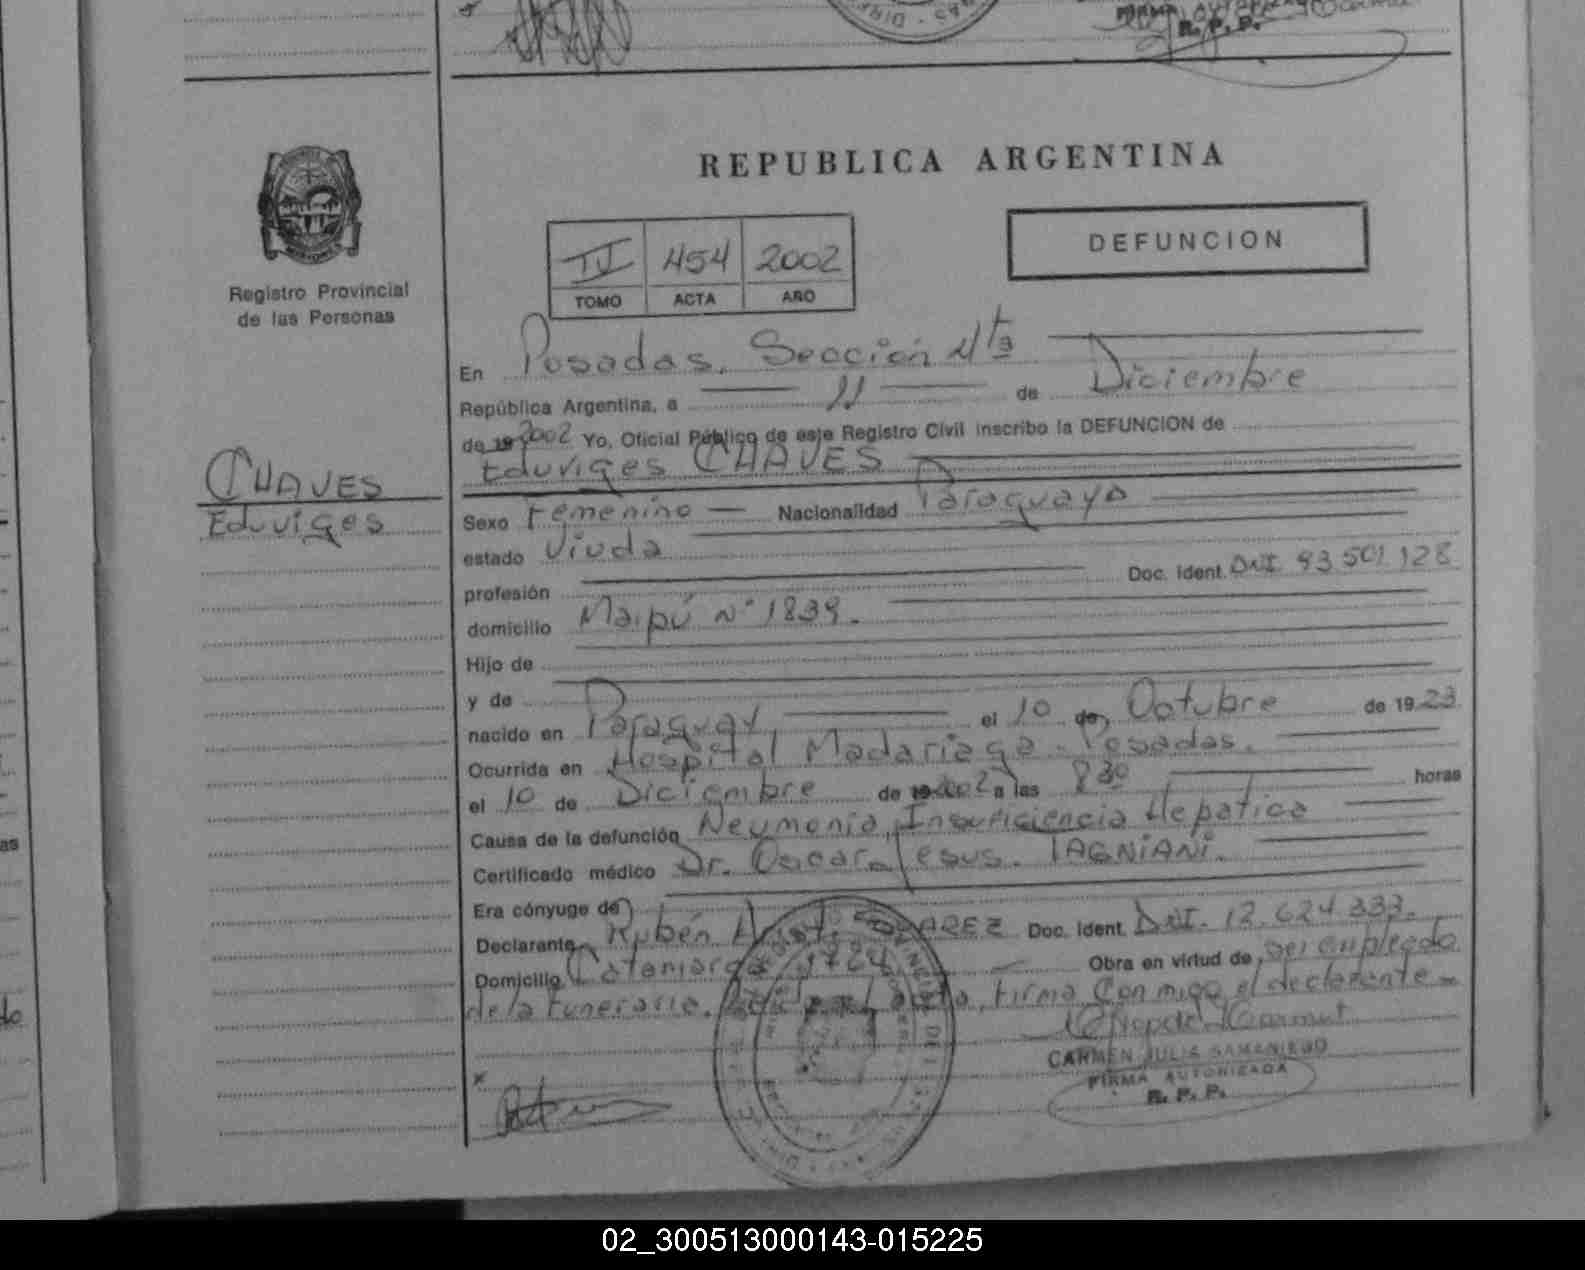 FIRMA AUTORIZADA
R. P. P.
REPUBLICA ARGENTINA
DEFUNCION
IV 454 2002
TOMO ACTA AÑO
Registro Provincial
de las Personas
En Posadas, Sección 4ta
República Argentina, a 11 de Diciembre
de 19 2002 Yo, Oficial Público de este Registro Civil inscribo la DEFUNCION de
Eduviges CHAVES
CHAVES
Eduviges
Sexo Femenino Nacionalidad Paraguaya
estado Viuda
profesión Doc. Ident. DNI 93 501 128
domicilio Maipú N° 1839.
Hijo de
y de
nacido en Paraguay el 10 de Octubre de 1923
Ocurrida en Hospital Madariaga - Posadas.
el 10 de Diciembre de 19 2002 a las 8 30 horas
Causa de la defunción Neumonia, Insuficiencia Hepatica
Certificado médico Dr. Oscar Jesus. TAGNIANI.
Era cónyuge de
Declarante Rubén Doc. Ident. DNI. 12.624.333.
Domicilio Catamarca Obra en virtud de ser empleado
de la Funeraria. acta, firma conmigo el declarante
CARMEN JULIA SAMANIEGO
FIRMA AUTORIZADA
R. P. P.
02_300513000143-015225